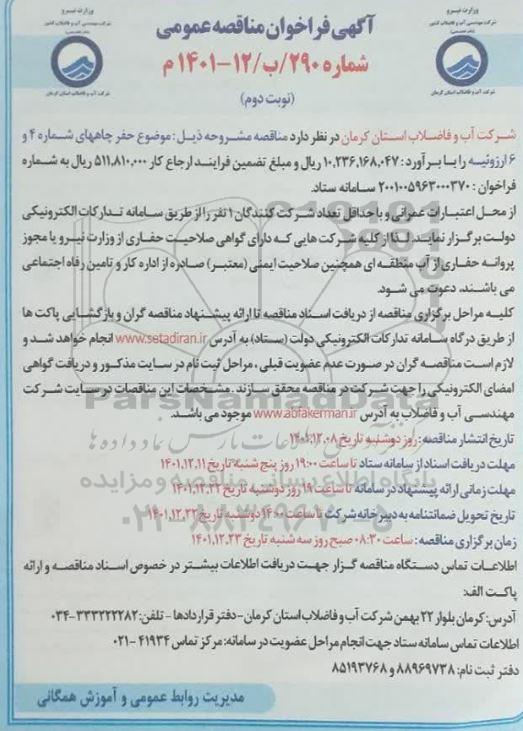 وزارت نیرو
شرکت مهندسی آب و فاضلاب کشور
شرکت آب و فاضلاب استان کرمان
وزارت نیرو
شرکت مهندسی آب و فاضلاب کشور
شرکت آب و فاضلاب استان کرمان
آگهی فراخوان مناقصه عمومی
شماره ۲۹۰/ب/۱۲-۱۴۰۱ م
(نوبت دوم)
شرکت آب و فاضلاب استان کرمان در نظر دارد مناقصه مشروحه ذیل: موضوع حفر چاههای شماره ۴ و
۶ ارزوئیه را با برآورد: ۱۰,۲۳۶,۱۶۸,۰۴۷ ریال و مبلغ تضمین فرایند ارجاع کار ۵۱۱,۸۱۰,۰۰۰ ریال به شماره
فراخوان: ۲۰۰۱۰۰۵۹۶۳۰۰۰۳۷۰ سامانه ستاد.
از محل اعتبارات عمرانی و با حداقل تعداد شرکت کنندگان ۱ نفر را از طریق سامانه تدارکات الکترونیکی
دولت برگزار نمایند. لذا از کلیه شرکت هایی که دارای گواهی صلاحیت حفاری از وزارت نیرو یا مجوز
پروانه حفاری از آب منطقه ای همچنین صلاحیت ایمنی (معتبر) صادره از اداره کار و تامین رفاه اجتماعی
می باشند، دعوت می شود.
کلیه مراحل برگزاری مناقصه از دریافت اسناد مناقصه تا ارائه پیشنهاد مناقصه گران و بازگشایی پاکت ها
از طریق درگاه سامانه تدارکات الکترونیکی دولت (ستاد) به آدرس www.setadiran.ir انجام خواهد شد و
لازم است مناقصه گران در صورت عدم عضویت قبلی، مراحل ثبت نام در سایت مذکور و دریافت گواهی
امضای الکترونیکی را جهت شرکت در مناقصه محقق سازند. مشخصات این مناقصات در سایت شرکت
مهندسی آب و فاضلاب به آدرس www.abfakerman.ir موجود می باشد.
ParsNamadData
تاریخ انتشار مناقصه: روز دوشنبه تاریخ ۱۴۰۱,۱۲,۰۸
مهلت دریافت اسناد از سامانه ستاد تا ساعت ۱۹:۰۰ روز پنج شنبه تاریخ ۱۴۰۱,۱۲,۱۱
پایگاه اطلاع رسانی مناقصه و مزایده
مهلت زمانی ارائه پیشنهاد در سامانه تا ساعت ۱۹ روز دوشنبه تاریخ ۱۴۰۱,۱۲,۲۲
تاریخ تحویل ضمانتنامه به دبیرخانه شرکت تا ساعت ۱۴:۰۰ دوشنبه تاریخ ۱۴۰۱,۱۲,۲۲
۰۲۱-۸۸۳۴۹۶۷۰-۵
زمان برگزاری مناقصه: ساعت ۰۸:۳۰ صبح روز سه شنبه تاریخ ۱۴۰۱,۱۲,۲۳
اطلاعات تماس دستگاه مناقصه گزار جهت دریافت اطلاعات بیشتر در خصوص اسناد مناقصه و ارائه
پاکت الف:
آدرس: کرمان بلوار ۲۲ بهمن شرکت آب و فاضلاب استان کرمان-دفتر قراردادها - تلفن: ۳۳۳۲۲۲۸۲-۰۳۴
اطلاعات تماس سامانه ستاد جهت انجام مراحل عضویت در سامانه: مرکز تماس ۴۱۹۳۴-۰۲۱
دفتر ثبت نام: ۸۸۹۶۹۷۳۸ و ۸۵۱۹۳۷۶۸
مدیریت روابط عمومی و آموزش همگانی